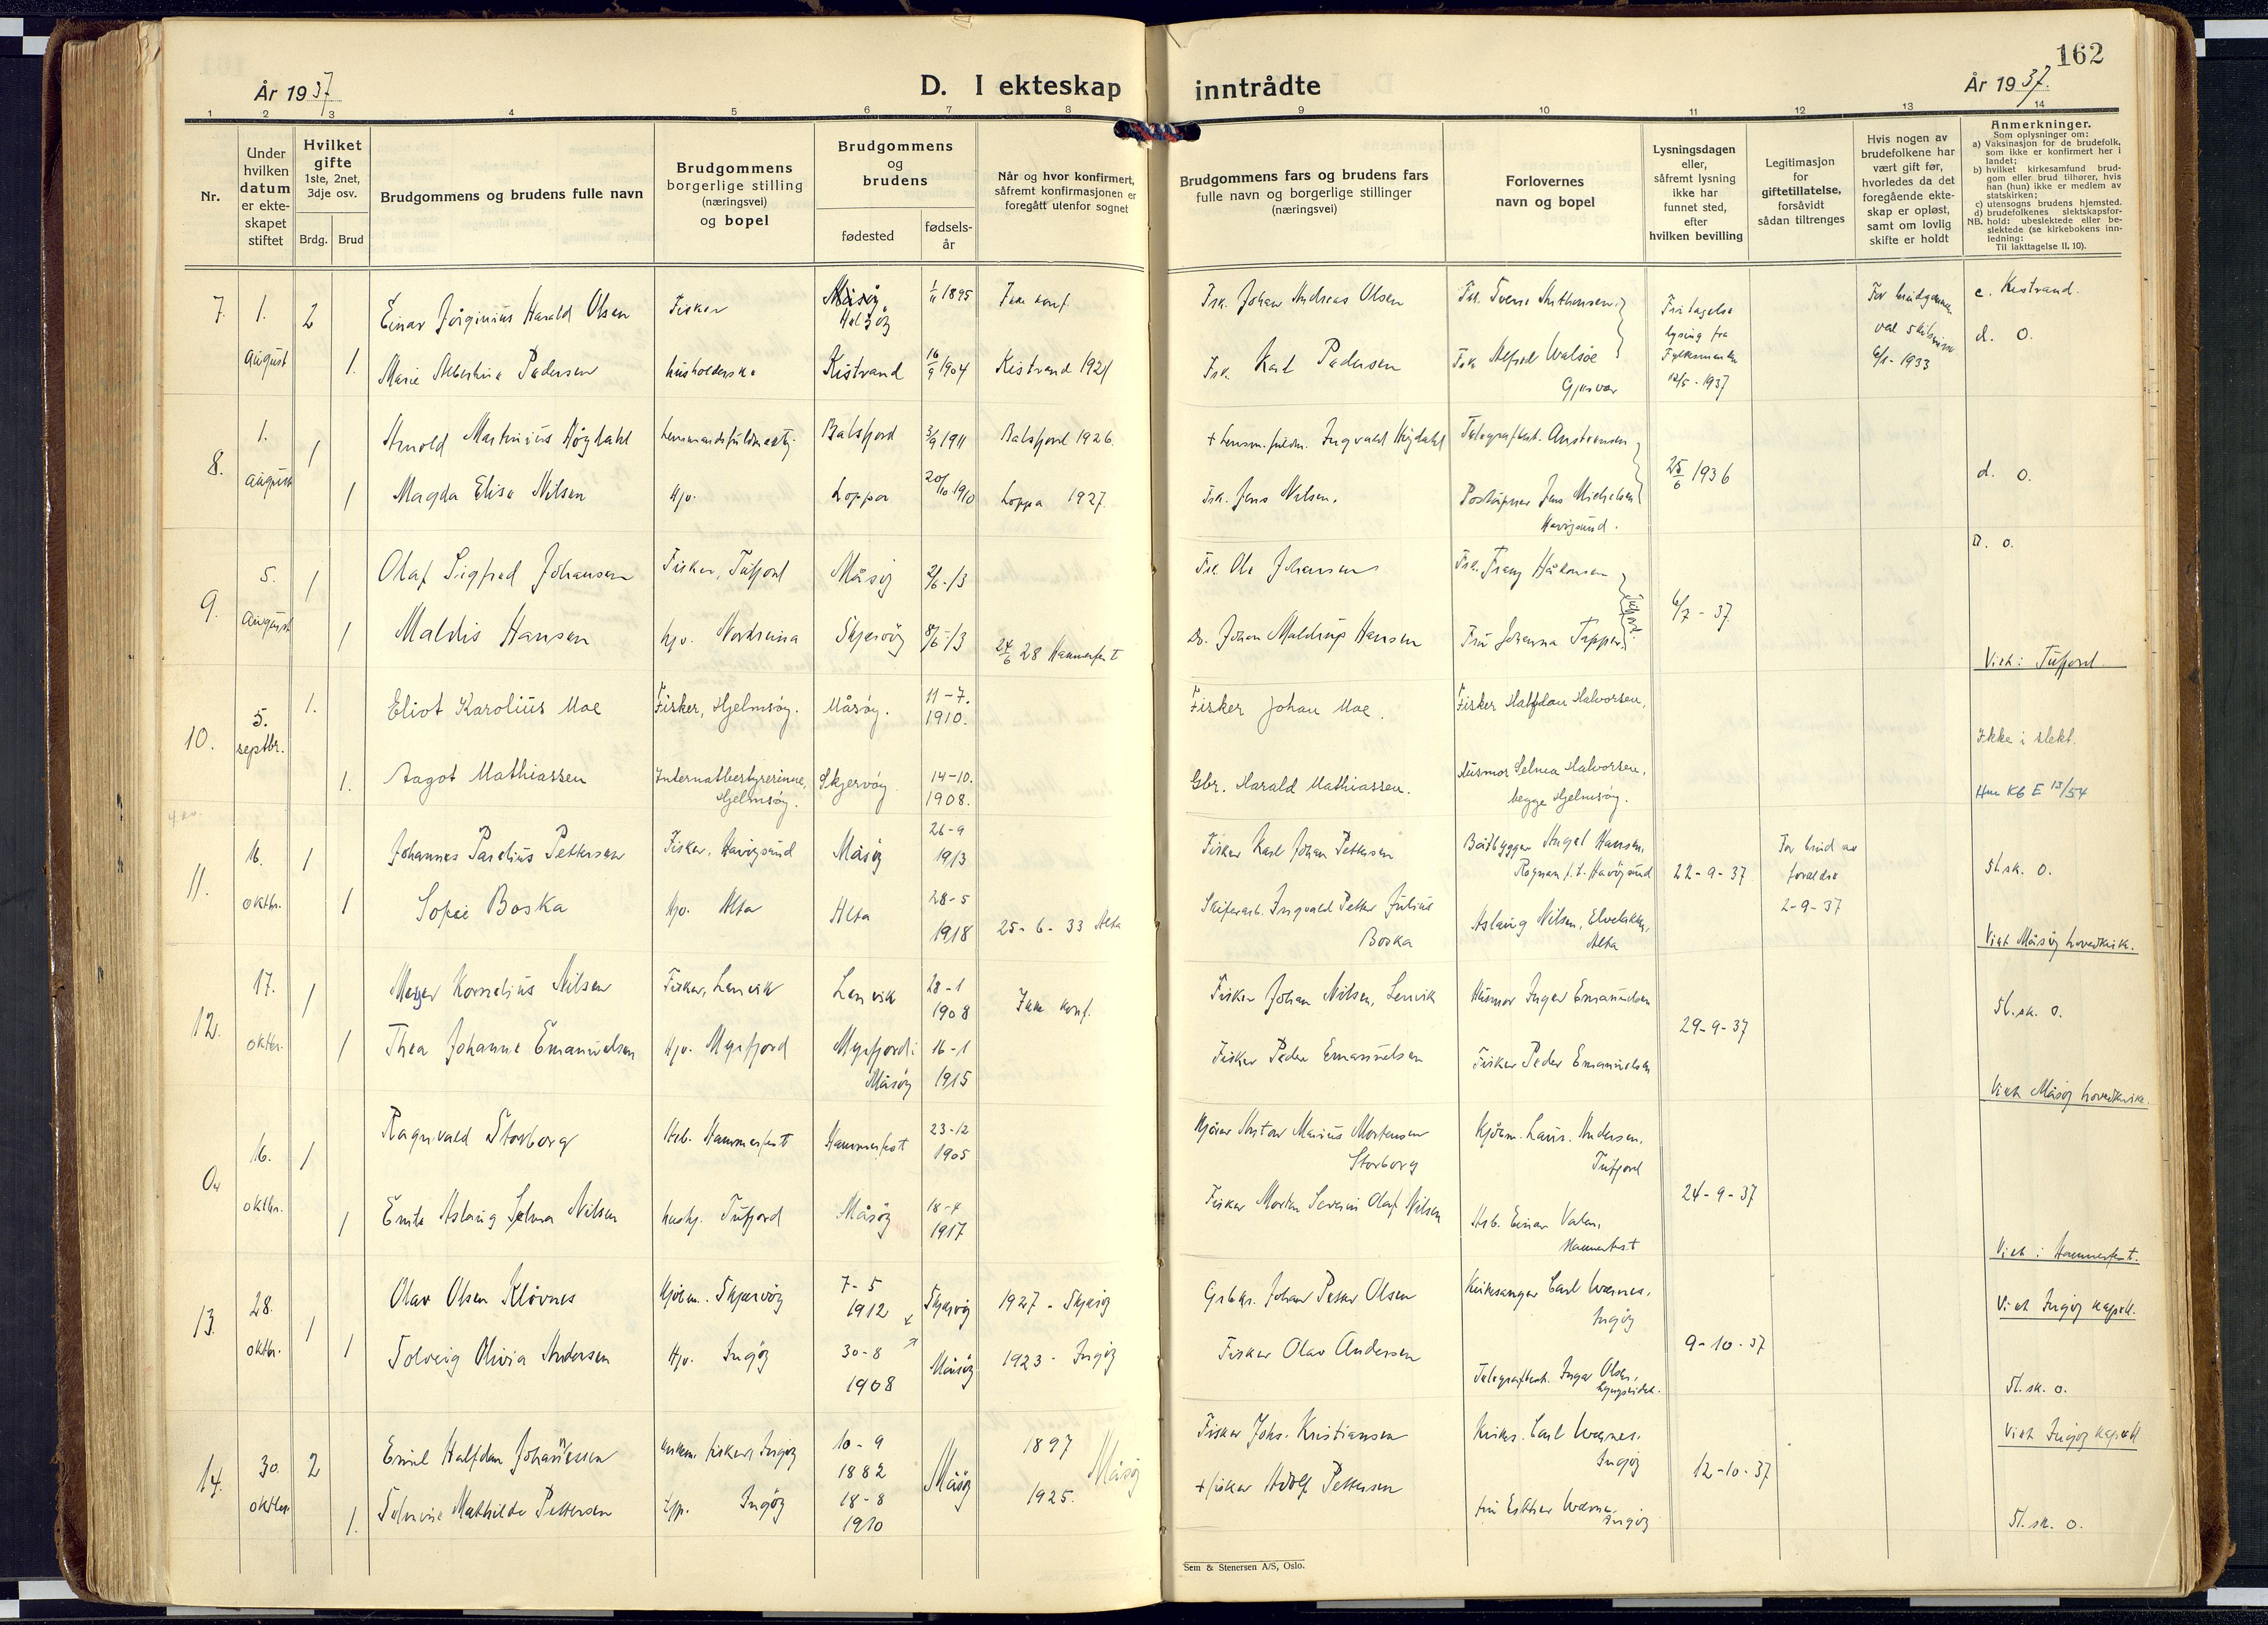 162
År 1937
D. I ekteskap inntrådte
År 1937.
1 2 3 4 5 6 7 8 9 10 11 12 13 14
Nr.
Under hvilken datum er ekte- skapet stiftet
Hvilket gifte
1ste, 2net, 3dje osv.
Brdg. Brud
Brudgommens og brudens fulle navn
Brudgommens borgerlige stilling (næringsvei) og bopel
Brudgommens og brudens
fødested
fødsels- år
Når og hvor konfirmert, såfremt konfirmasjonen er foregått utenfor sognet
Brudgommens fars og brudens fars fulle navn og borgerlige stillinger (næringsvei)
Forlovernes navn og bopel
Lysningsdagen eller, såfremt lysning ikke har funnet sted, efter hvilken bevilling
Legitimasjon for giftetillatelse, forsåvidt sådan tiltrenges
Hvis nogen av brudefolkene har vært gift før, hvorledes da det foregående ekte- skap er opløst, samt om lovlig skifte er holdt
Anmerkninger.
Som oplysninger om:
a) Vaksinasjon for de brudefolk, som ikke er konfirmert her i landet;
b) hvilket kirkesamfund brud- gom eller brud tilhører, hvis han (hun) ikke er medlem av statskirken;
c) utensogns brudens hjemsted.
d) brudefolkenes slektskapsfor- hold: ubeslektede eller be- slektede (se kirkebokens inn- ledning:
NB.
Til iakttagelse II. 10).
7. 1. August 2
Einar Jørginius Harald Olsen Fisker Måsøy Helsøy 1895 Ikke konf.
Fsk. Johan Andreas Olsen
1.
Marie Albertine Pedersen husholderske Kistrand 16/9 1904 Kistrand 1921
Fsk. Karl Pedersen
Fsk. Alfred Walsøe Gjesvær
Fritagelse lysing fra Fylkesmannen 12/5-1937
For brudgommen ved skilsmisse 6/1-1933
c. Kistrand.
d. 0.
8. 1. August 1
Arnold Martinius Høgdahl Lensmandsfuldmektig Balsfjord 3/9 1911 Balsfjord 1926.
+ Lensm.fuldm. Ingvald Høgdahl
1
Magda Elise Nilsen Hjv. Loppa 20/10 1910 Loppa 1927.
Fsk. Jens Nilsen.
Poståpner Jens Michelsen Havøysund.
25/6 1936
d. 0.
9. 5. August 1
Olaf Sigfred Johansen Fisker, Tufjord Måsøy 2/6-13
Fsk. Ole Johansen
1
Maldis Hansen hjv. Nordreisa Skjervøy 8/6-13 24/6 28 Hammerfest
Johan Maldrup Hansen
Fru Johanna Tapper
6/7-37
D. 0.
Viet i Tufjord
10. 5. septbr. 1.
Eliot Karolius Moe Fisker, Hjelmsøy. Måsøy. 11-7. 1910.
Fisker Johan Moe.
Fisker Halfdan Halvorsen,
1.
Aagot Mathiassen Internatbestyrerinne, Hjelmsøy. Skjervøy 14-10. 1908.
Gbr. Harald Mathiassen.
Husmor Selma Halvorsen, begge Hjelmsøy.
Ikke i slekt.
11. 16. oktbr. 1
Johannes Parelius Pettersen Fisker, Havøysund Måsøy 26-9 1913
Fisker Karl Johan Pettersen
Båtbygger Angel Hansen, Rognan f.t. Havøysund
1
Sofie Boska Hjv. Alta Alta 28-5 1918 25-6-33 Alta
Skiferarb. Ingvald Petter Julius Boska
Aslaug Nilsen, Elvebakken, Alta
22-9-37
For brud av foreldre 2-9-37
Sl.sk. 0.
Viet Måsøy hovedkirke.
12. 17. oktbr. 1
Meyer Kornelius Nilsen Fisker, Lenvik Lenvik 28-1 1908 Ikke konf.
Fisker Johan Nilsen, Lenvik
Husmor Inger Emanuelsen
1
Thea Johanne Emanuelsen Hjv. Myrfjord Myrfjord i Måsøy 16-1 1915
Fisker Peder Emanuelsen
Fisker Peder Emanuelsen
29-9-37
Sl.sk. 0.
Viet Måsøy hovedkirke.
16. oktbr. 1
Ragnvald Storborg Arb. Hammerfest Hammerfest 23-12 1905
Kjører Anton Marius Mortensen Storborg
Kjøbm. Laur. Andersen. Tufjord
1
Emile Aslaug Selma Nilsen hushj. Tufjord Måsøy 18-4 1917
Fisker Morten Severin Olaf Nilsen
Arb. Einar Valen. Hammerfest
24-9-37
Viet i Hammerfest.
13. 28. oktbr. 1
Olav Olsen Kløvnes Kjøbm. Skjervøy 7-5 1912 Skjervøy 1927 - Skjervøy
Grbkr. Johan Petter Olsen
Kirkesanger Carl Wærnes, Ingøy
1
Solveig Olivia Andersen Hjv. Ingøy 30-8 1908 Måsøy 1923 - Ingøy
Fisker Olav Andersen
Telegrafbest. Inger Olsen,
9-10-37
Viet Ingøy kapell.
Sl.sk. 0.
14. 30. oktbr. 2
Emil Halfdan Johannessen fisker, Ingøy 10-9 1882 Måsøy 1897 Måsøy
Fisker Johs. Kristiansen
Kirks. Carl Wærnes. Ingøy
1.
Solvine Mathilde Pettersen Ingøy 18-8 1910 1925.
+ fisker Adolf Pettersen
fru Esther Wærnes Ingøy
12-10-37
Viet Ingøy kapell
Sl.sk. 0.
Sem & Stenersen A/S, Oslo.